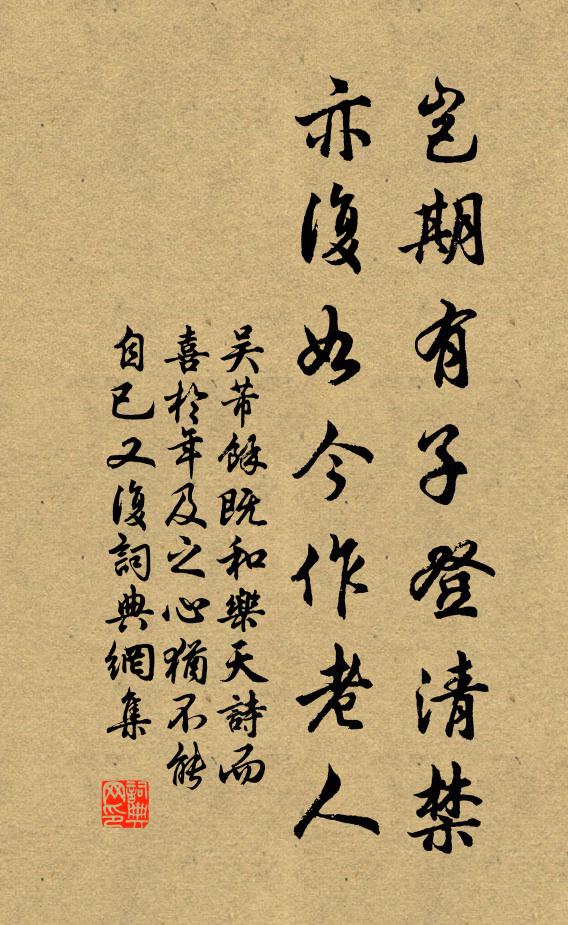 豈期有子登清禁
亦復如今作老人
吳芾餘既和樂天詩而
喜於年及之心猶不能
自已又復詞典網集
詞典网印